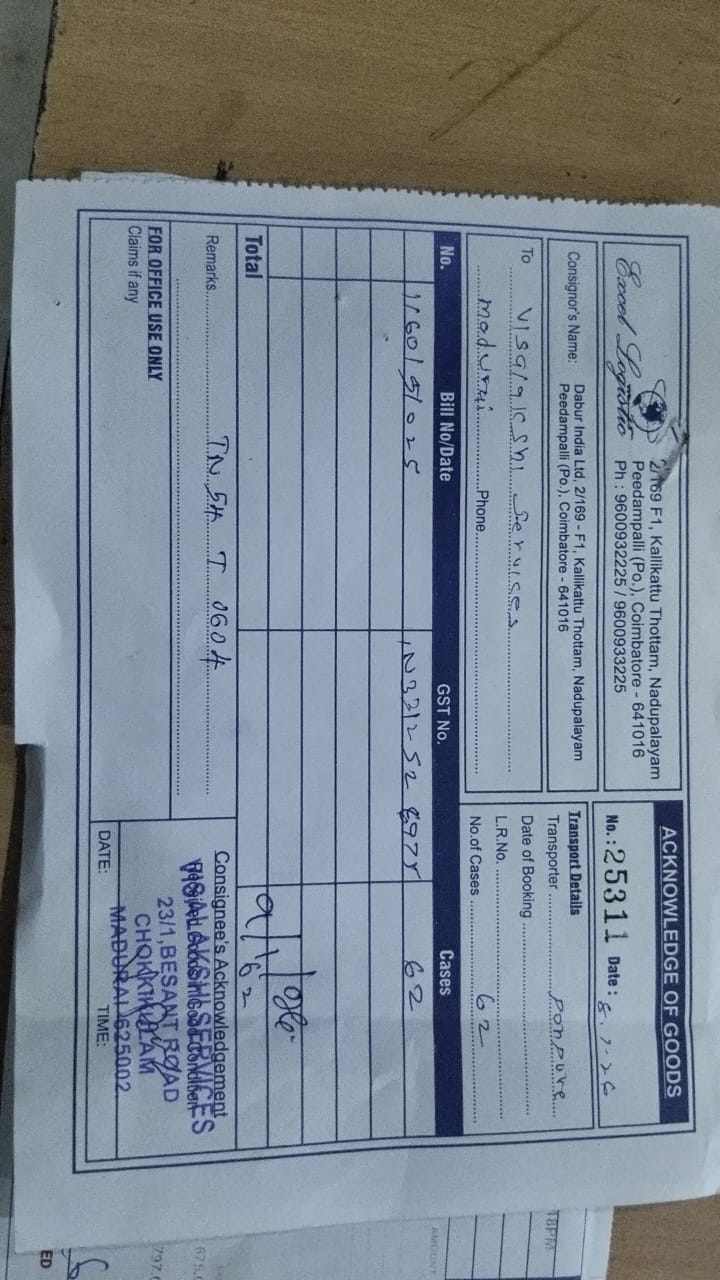 ACKNOWLEDGE OF GOODS
Excel Logistic
2/169 F1, Kallikattu Thottam, Nadupalayam
Peedampalli (Po.), Coimbatore - 641016
Ph : 9600932225 / 9600933225
No. : 25311 Date : 8.1.26
Consignor's Name: Dabur India Ltd, 2/169 - F1, Kallikattu Thottam, Nadupalayam
Peedampalli (Po.), Coimbatore - 641016
To Visalakshi Services
madurai Phone
Transport Details
Transporter ponpure
Date of Booking
L.R.No.
No.of Cases 62
No. Bill No/Date GST No. Cases
1160151025 62
Total 62
Remarks TN 54 T 0604
FOR OFFICE USE ONLY
Claims if any
Consignee's Acknowledgement
Received Goods in Good Condition
VISALAKSHI SERVICES
23/1, BESANT ROAD
CHOKKIKULAM
MADURAI 625002
DATE: TIME:
18PM
AMOUNT
ED